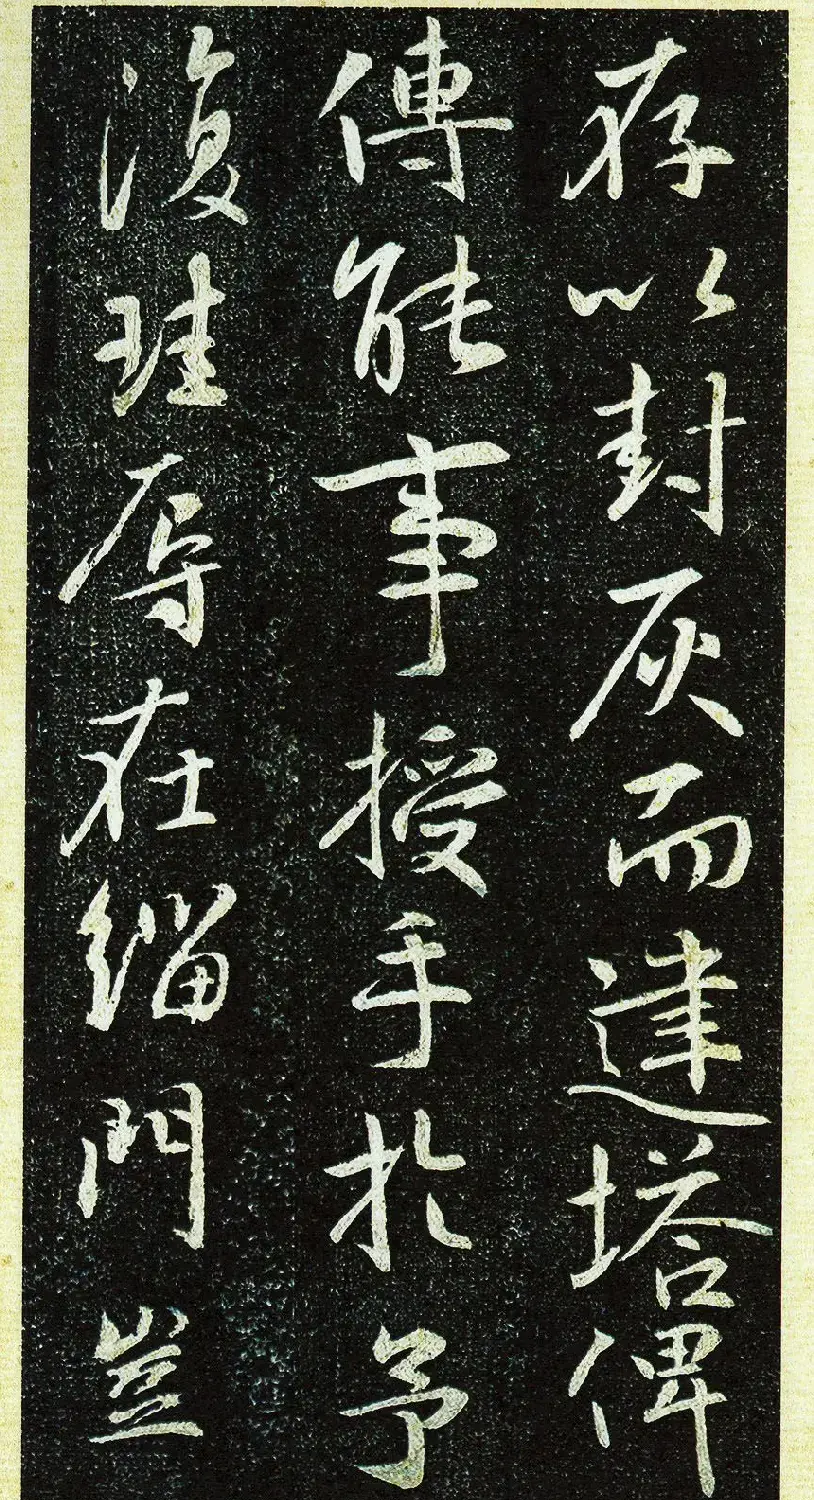 存以封灰而建塔俾
傳能事授手於予
復玷辱在緇門豈